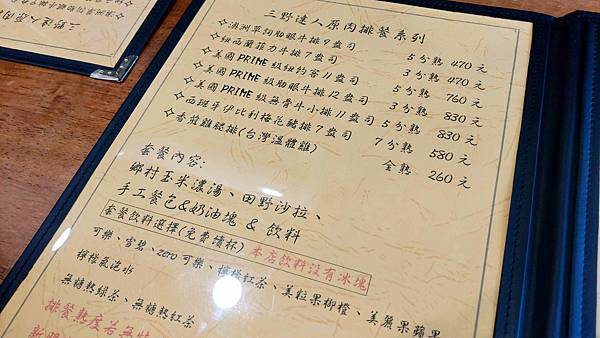 三野達人原肉排餐系列
✧澳洲草飼肋眼牛排9盎司 5分熟 470元
✧紐西蘭菲力牛排7盎司 3分熟 470元
✧美國PRIME級紐約客11盎司 5分熟 760元
✧美國PRIME級肋眼牛排12盎司 3分熟 830元
✧美國PRIME級無骨牛小排11盎司 5分熟 830元
✧西班牙伊比利梅花豬排7盎司 7分熟 580元
✧香菇雞腿排(台灣溫體雞) 全熟 260元
套餐內容:
鄉村玉米濃湯、田野沙拉、
手工餐包&奶油塊 & 飲料
套餐飲料選擇(免費續杯) 本店飲料沒有冰塊
可樂、雪碧、zero可樂、檸檬紅茶、美粒果柳橙、美粒果蘋果
檸檬氣泡水
無糖熱綠茶、無糖熱紅茶
排餐熟度若無特
三野達人原肉